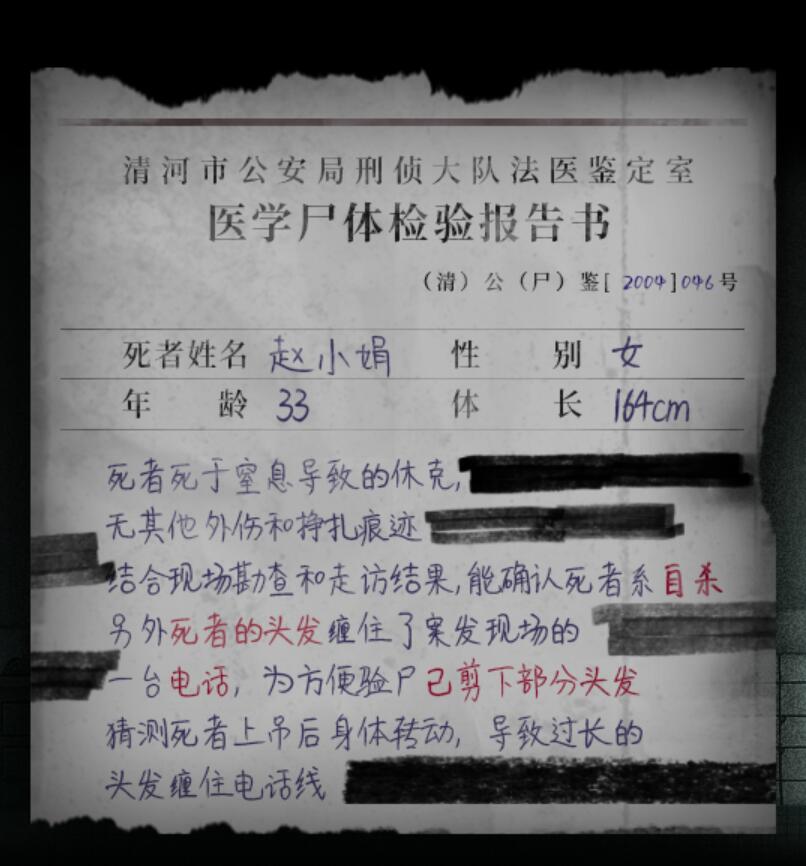 清河市公安局刑侦大队法医鉴定室
医学尸体检验报告书
（清）公（尸）鉴[2004]046号
死者姓名 赵小娟 性别 女
年龄 33 体长 164cm
死者死于窒息导致的休克,
无其他外伤和挣扎痕迹
结合现场勘查和走访结果,能确认死者系自杀
另外死者的头发缠住了案发现场的
一台电话,为方便验尸已剪下部分头发
猜测死者上吊后身体转动,导致过长的
头发缠住电话线